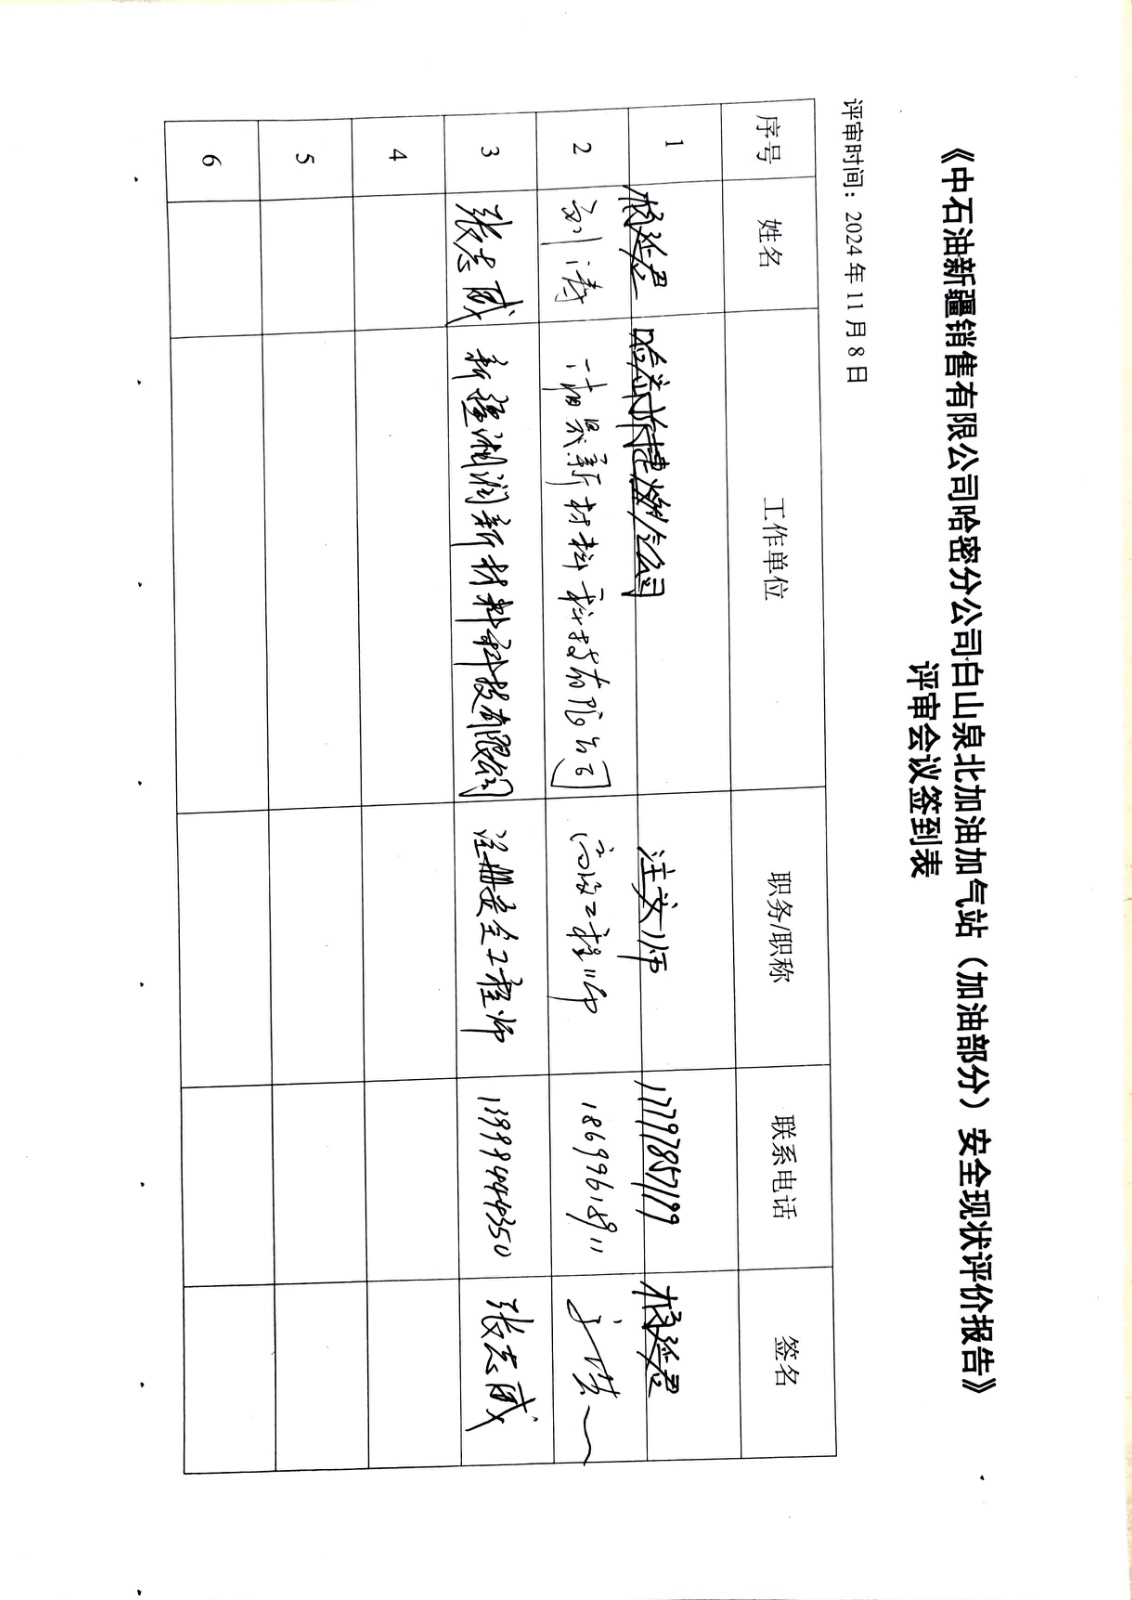 《中石油新疆销售有限公司哈密分公司白山泉北加油加气站（加油部分）安全现状评价报告》
评审会议签到表
评审时间：2024年11月8日
序号 姓名 工作单位 职务/职称 联系电话 签名
1 杨延君 哈密新捷燃气公司 注安师 17797857199 杨延君
2 刘涛 新材料科技有限公司 高级工程师 18699618911
3 张志威 新疆湘润新材料科技有限公司 注册安全工程师 13999444350 张志威
4
5
6